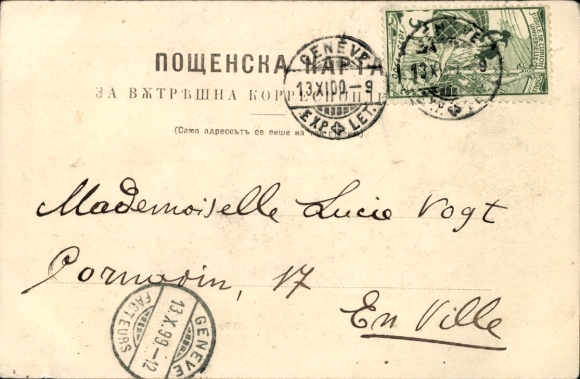 ПОЩЕНСКА КАРТА
ЗА ВѪТРѢШНА КОРРЕСПОНДЕ
(Само адрессътъ се пише на
GENÈVE
13.XI.00.-9
EXP. LET.
GENÈVE
13.X
9
Mademoiselle Lucie Vogt
17
En Ville
GENÈVE
13.X.99.-12
FACTEURS